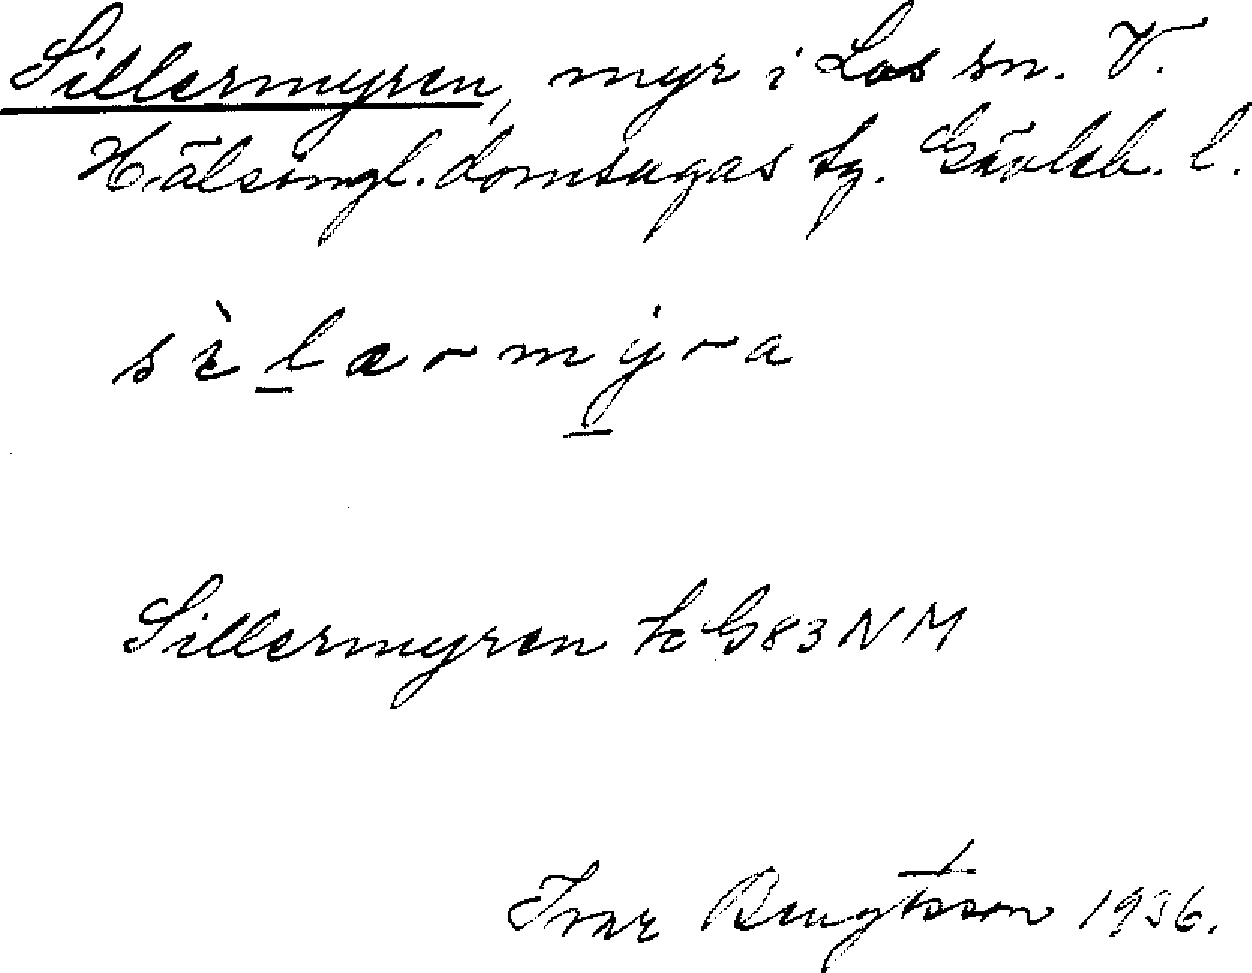 Sillermyren, myr i Los sn. V.
Hälsingl. domsagas tg. Gävleb. l.
sìlærmýra
Sillermyren k G83NM
Ivar Bengtsson 1936.